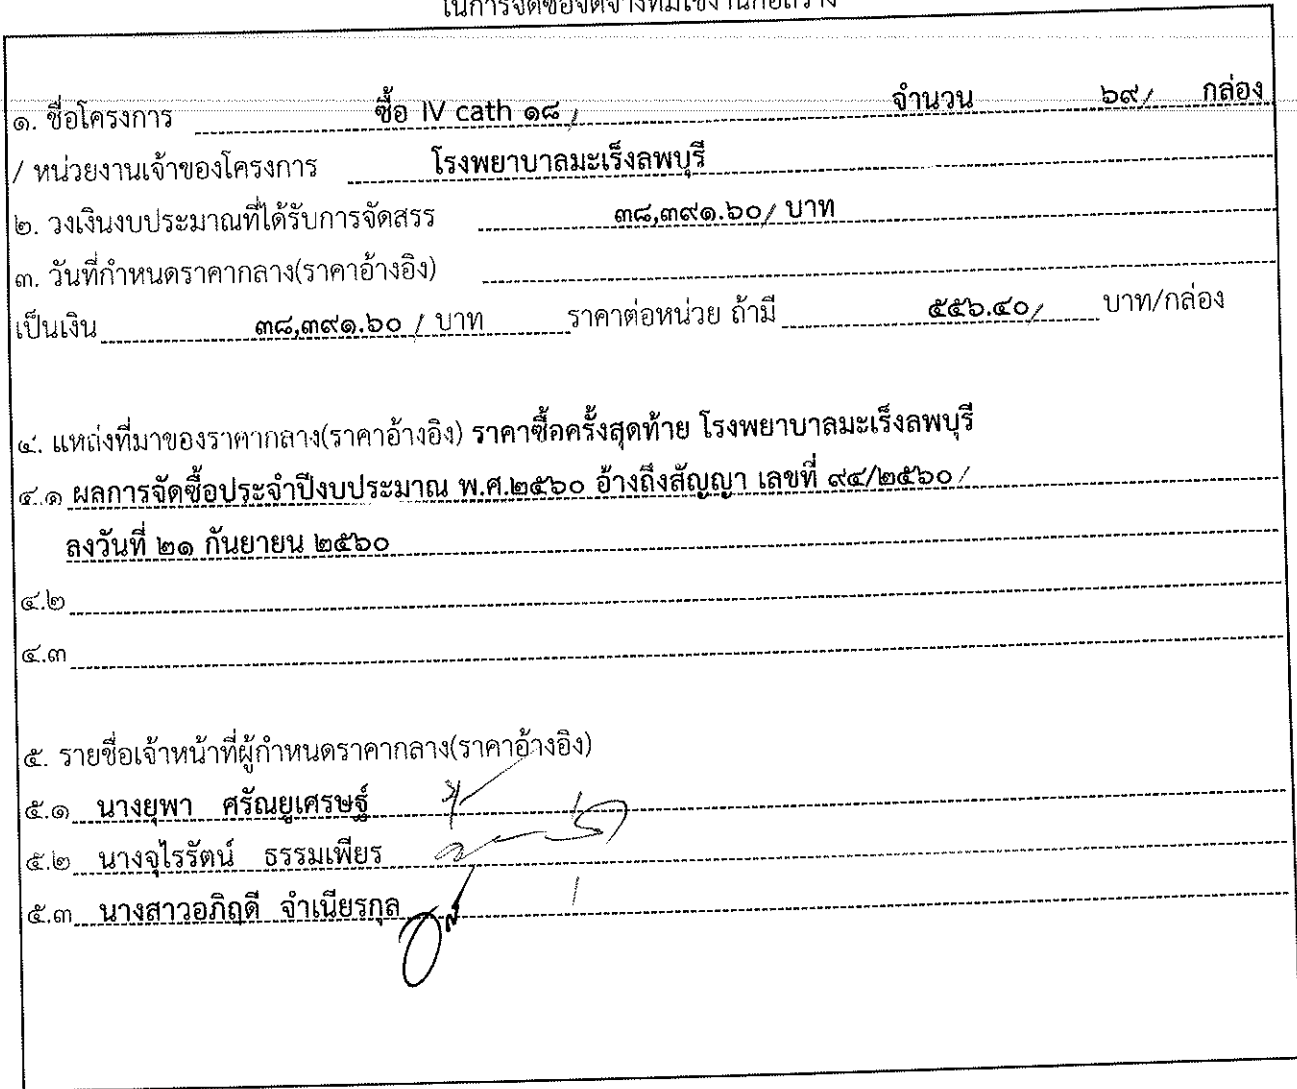 ในการจัดซื้อจัดจ้างที่มิใช่งานก่อสร้าง
๑. ชื่อโครงการ ซื้อ IV cath ๑๘ / จำนวน ๖๙/ กล่อง
/ หน่วยงานเจ้าของโครงการ โรงพยาบาลมะเร็งลพบุรี
๒. วงเงินงบประมาณที่ได้รับการจัดสรร ๓๘,๓๙๑.๖๐/ บาท
๓. วันที่กำหนดราคากลาง(ราคาอ้างอิง)
เป็นเงิน ๓๘,๓๙๑.๖๐ / บาท ราคาต่อหน่วย ถ้ามี ๕๕๖.๔๐/ บาท/กล่อง
๔. แหล่งที่มาของราคากลาง(ราคาอ้างอิง) ราคาซื้อครั้งสุดท้าย โรงพยาบาลมะเร็งลพบุรี
๔.๑ ผลการจัดซื้อประจำปีงบประมาณ พ.ศ.๒๕๖๐ อ้างถึงสัญญา เลขที่ ๙๔/๒๕๖๐ /
ลงวันที่ ๒๑ กันยายน ๒๕๖๐
๔.๒
๔.๓
๕. รายชื่อเจ้าหน้าที่ผู้กำหนดราคากลาง(ราคาอ้างอิง)
๕.๑ นางยุพา ศรัณยูเศรษฐ์
๕.๒ นางจุไรรัตน์ ธรรมเพียร
๕.๓ นางสาวอภิฤดี จำเนียรกุล